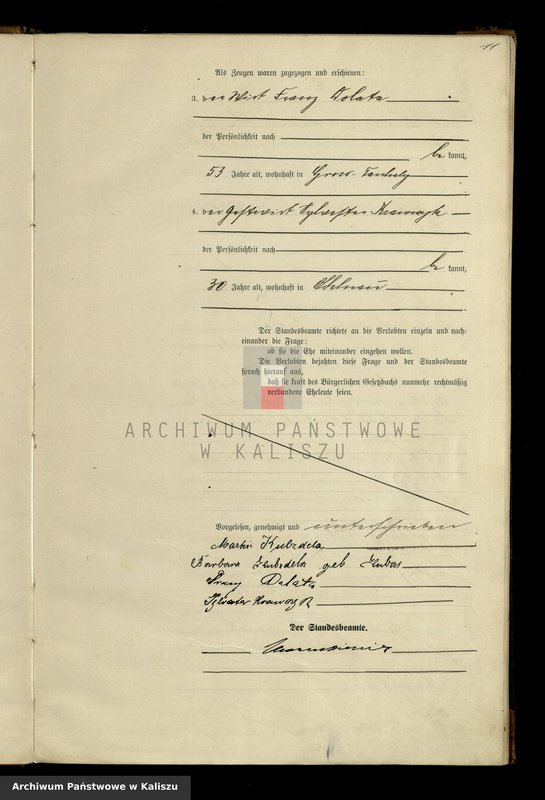 11
Als Zeugen waren zugezogen und erschienen:
3. der Wirt Franz Dolata
der Persönlichkeit nach
be kannt,
53 Jahre alt, wohnhaft in Gross-
4. der Gastwirt Sylvester Krawczyk
der Persönlichkeit nach
be kannt,
30 Jahre alt, wohnhaft in
Der Standesbeamte richtete an die Verlobten einzeln und nach-
einander die Frage:
ob sie die Ehe miteinander eingehen wollen.
Die Verlobten bejahten diese Frage und der Standesbeamte
sprach hierauf aus,
daß sie kraft des Bürgerlichen Gesetzbuchs nunmehr rechtmäßig
verbundene Eheleute seien.
ARCHIWUM PAŃSTWOWE
W KALISZU
Vorgelesen, genehmigt und unterschrieben
Martin Kubzdela
Barbara Kubzdela geb Kubas
Franz Dolata
Sylvester Krawczyk
Der Standesbeamte.
Archiwum Państwowe w Kaliszu